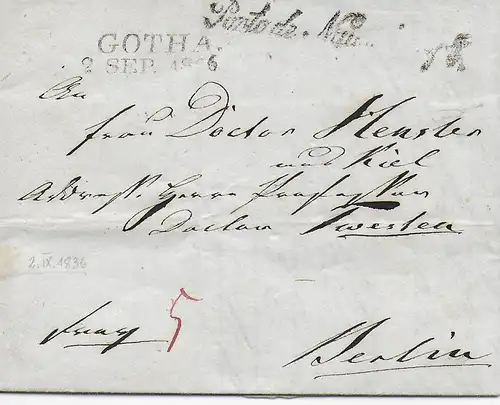 GOTHA.
2 SEP. 1836
Porto de
An
Frau Doctor Hensler
aus Kiel
Address. Herrn Professor
Doctor Twesten
2.IX.1836
franco 5
Berlin